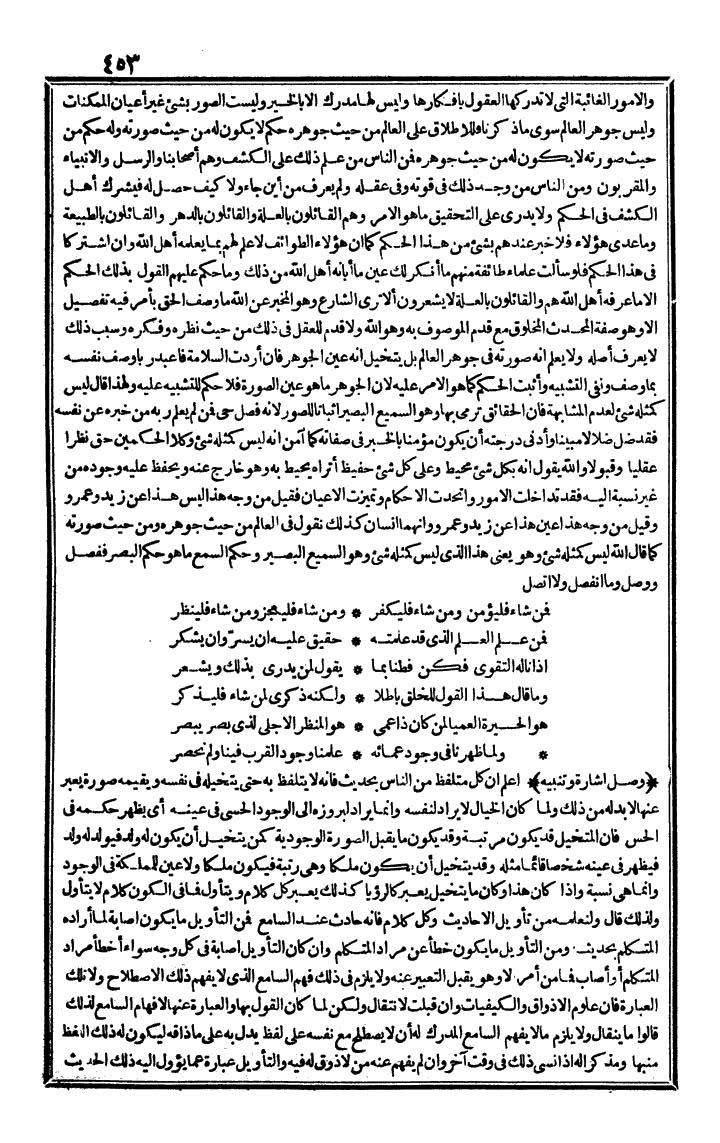 ٤٥٣
والامور الغائبة التى لا تدركها العقول بافكارها وليس لها مدرك الا بالخبر وليست الصور بشئ غير أعيان الممكنات
وليس جوهر العالم سوى ماذكرناه فللاطلاق على العالم من حيث جوهره حكم لا يكون له من حيث صورته وله حكم من
حيث صورته لا يكون له من حيث جوهره فمن الناس من علم ذلك على الكشف وهم أصحابنا والرسل والانبياء
والمقربون ومن الناس من وجد ذلك فى قوته وفى عقله ولم يعرف من أين جاء ولا كيف حصل له فيشرك أهل
الكشف فى الحكم ولا يدرى على التحقيق ماهو الامر وهم القائلون بالعلة والقائلون بالدهر والقائلون بالطبيعة
وماعدى هؤلاء فلا خبر عندهم بشئ من هذا الحكم كما ان هؤلاء الطوائف لا علم لهم بما يعلمه أهل الله وان اشتركا
فى هذا الحكم فلو سألت علماء طائفة منهم ما أنكر لك عين ما أبانه أهل الله من ذلك وما حكم عليهم القول بذلك الحكم
الا ماعرفه أهل الله هم والقائلون بالعلة لا يشعرون ألا ترى الشارع وهو المخبر عن الله ماوصف الحق بأمر فيه تفصيل
الا وهو صفة المحدث المخلوق مع قدم الموصوف به وهو الله ولا قدم للعقل فى ذلك من حيث نظره وفكره وسبب ذلك
لا يعرف أصله ولا يعلم انه صورته فى جوهر العالم بل يتخيل انه عين الجوهر فان أردت السلامة فاعبد ربا وصف نفسه
بما وصف ونفى التشبيه وأثبت الحكم كما هو الامر عليه لان الجوهر ماهو عين الصورة فلا حكم للتشبيه عليه ولهذا قال ليس
كمثله شئ لعدم المشابهة فان الحقائق ترمى بها وهو السميع البصير اثباتا للصور لانه فصل حى فمن لم يعلم ربه من خبره عن نفسه
فقد ضل ضلالا مبينا وأدنى درجته أن يكون مؤمنا بالخبر فى صفاته كما آمن انه ليس كمثله شئ وكلا الحكمين حق نظرا
عقليا وقبولا والله يقول انه بكل شئ محيط وعلى كل شئ حفيظ أتراه يحيط به وهو خارج عنه ويحفظ عليه وجوده من
غير نسبة اليه فقد تداخلت الامور واتحدت الاحكام وتميزت الاعيان فقيل من وجه هذا ليس هذا عن زيد وعمرو
وقيل من وجه هذا عين هذا عن زيد وعمرو وانهما انسان كذلك نقول فى العالم من حيث جوهره ومن حيث صورته
كما قال الله ليس كمثله شئ وهو يعنى هذا الذى ليس كمثله شئ وهو السميع البصير وحكم السمع ماهو حكم البصر ففصل
ووصل وما انفصل ولا اتصل
فمن شاء فليؤمن ومن شاء فليكفر * ومن شاء فليعجز ومن شاء فلينظر
فمن علم العلم الذى قد علمته * حقيق عليه ان يسرّ وان يشكر
اذا ناله التقوى فكن فطنا بما * يقول لمن يدرى بذلك ويشعر
وما قال هذا القول للخلق باطلا * ولكنه ذكرى لمن شاء فليذكر
هو الحيرة العميا لمن كان ذا عمى * هو المنظر الاجلى لذى بصر يبصر
* ولما ظهرنا فى وجود عمائه * علمنا وجود القرب فينا ولم نحصر
﴿وصل اشارة وتنبيه﴾ اعلم ان كل متلفظ من الناس بحديث فانه لا يتلفظ به حتى يتخيله فى نفسه ويقيمه صورة يعبر
عنها لا بد له من ذلك ولما كان الخيال لا يراد لنفسه وانما يراد لبروزه الى الوجود الحسى فى عينه أى يظهر حكمه فى
الحس فان المتخيل قد يكون مرتبة وقد يكون ما يقبل الصورة الوجودية كمن يتخيل أن يكون له ولد فيولد له ولد
فيظهر فى عينه شخصا قائما مثله وقد يتخيل أن يكون ملكا وهى رتبة فيكون ملكا ولا عين للمملكة فى الوجود
وانما هى نسبة واذا كان هذا وكان ما يتخيل يعبر كالرؤيا كذلك يعبر كل كلام ويتأول فما فى الكون كلام لا يتأول
ولذلك قال ولنعلمه من تأويل الاحاديث وكل كلام فانه حادث عند السامع فمن التأويل ما يكون اصابة لما أراده
المتكلم بحديثه ومن التأويل ما يكون خطأ عن مراد المتكلم وان كان التأويل اصابة فى كل وجه سواء أخطأ مراد
المتكلم أو أصاب فما من أمر الا وهو يقبل التعبير عنه ولا يلزم فى ذلك فهم السامع الذى لا يفهم ذلك الاصطلاح ولا تلك
العبارة فان علوم الاذواق والكيفيات وان قبلت لا تنتقال ولكن لما كان القول بها والعبارة عنها لافهام السامع لذلك
قالوا ما ينقال ولا يلزم مالا يفهم السامع المدرك له أن لا يصطلح مع نفسه على لفظ يدل به على ماذاقه ليكون له ذلك اللفظ
منبها ومذكرا له اذا نسى ذلك فى وقت آخر وان لم يفهم عنه من لا ذوق له فيه والتأويل عبارة عما يؤول اليه ذلك الحديث